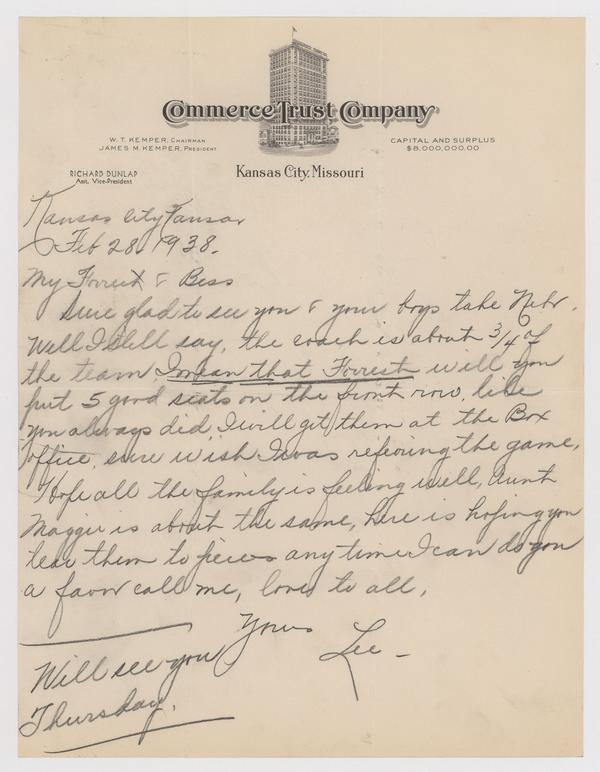 Commerce Trust Company
W. T. KEMPER, CHAIRMAN
JAMES M. KEMPER, PRESIDENT
CAPITAL AND SURPLUS
$8,000,000.00
RICHARD DUNLAP
Asst. Vice-President
Kansas City, Missouri
Kansas City Kansas
Feb 28, 1938.
My Forrest & Bess
Sure glad to see you & your boys take Nebr.
Well I still say, the coach is about 3/4 of
the team, I mean that Forrest will you
put 5 good seats on the front row, like
you always did, I will get them at the Box
office, sure wish I was refereing the game,
I hope all the family is feeling well, Aunt
Maggie is about the same, here is hoping you
tear them to pieces any time I can do you
a favor call me, love to all,
Yours
Lee -
Will see you
Thursday.